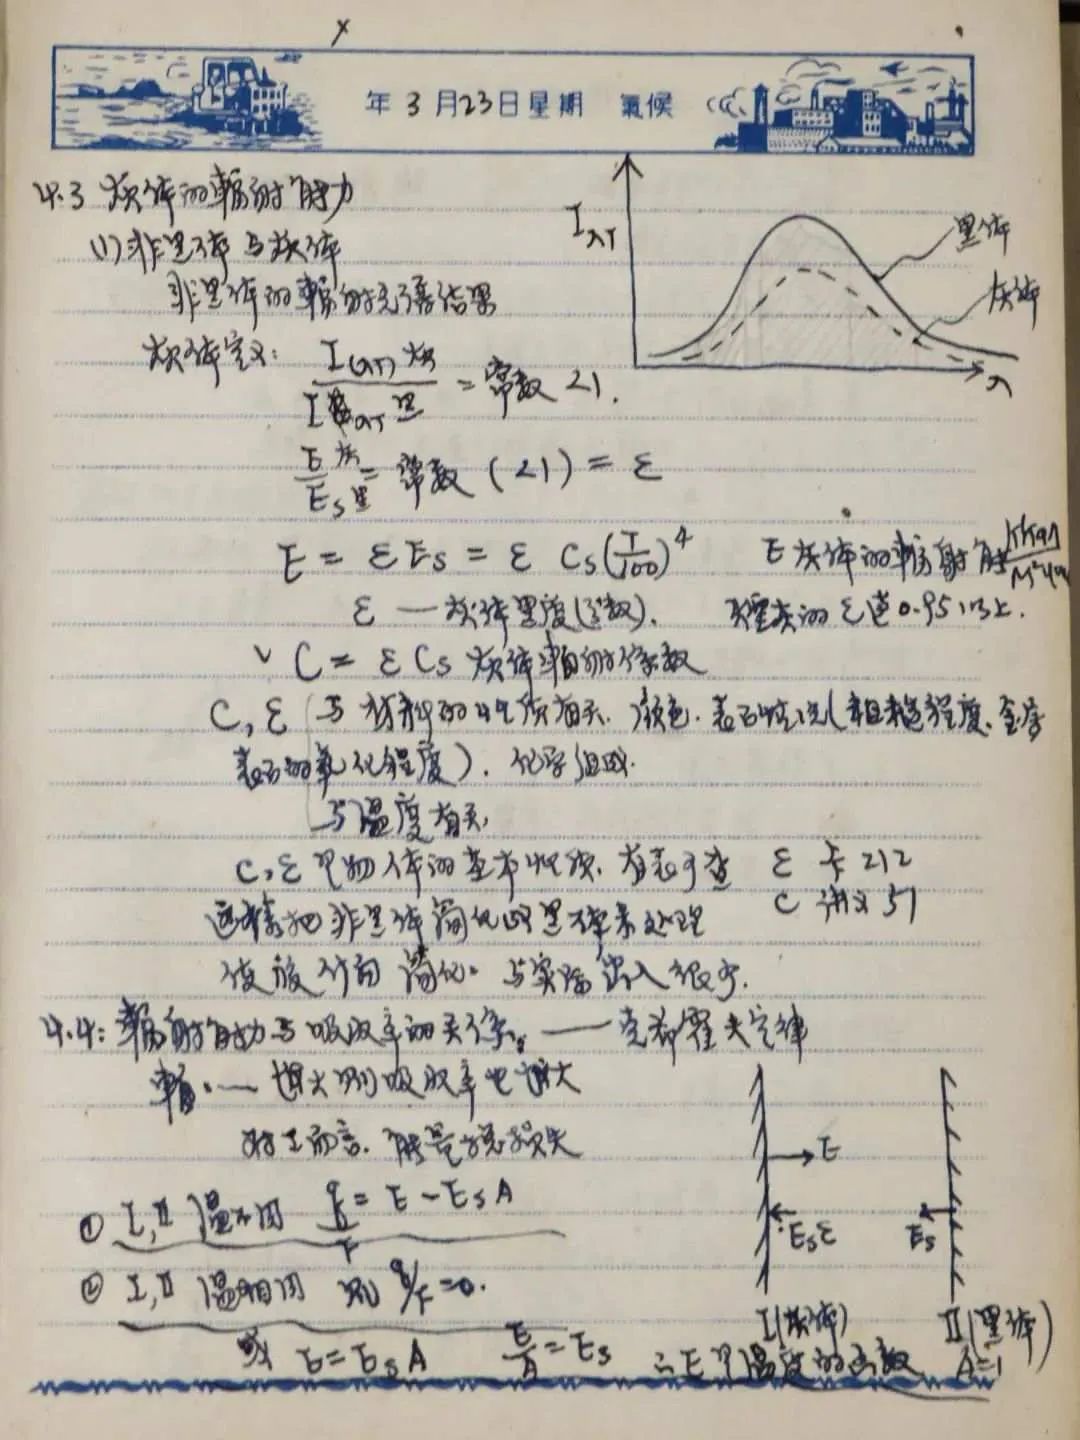 x
年 3 月 23 日 星期 氣候
4.3 灰体的辐射能力
(1) 非黑体与灰体
非黑体的辐射光谱结果
灰体定义: I(λT)灰 / IλT黑 = 常数 <1.
E灰 / Es黑 = 常数 (<1) = ε
IλT
黑体
灰体
λ
E = εEs = ε Cs(T/100)^4 E 灰体的辐射能
ε — 灰体黑度(系数). 的 ε 达 0.95 以上.
∨ C = εCs 灰体辐射系数
C, ε 与材料的性质有关. 颜色. 表面情况(粗糙程度. 金属
表面的氧化程度). 化学组成.
与温度有关.
C, ε 是物体的基本性质. 有表可查 ε 212
C 讲义 51
这样把非黑体简化成黑体来处理
简化. 与实际出入很少.
4.4: 辐射能力与吸收率的关系. —— 克希霍夫定律
辐. — 增大 则吸收率也增大
对 I 而言. 能量 损失
① I, II 温不同 q/F = E - EsA
② I, II 温相同 则 q/F = 0.
或 E = EsA E/A = Es ∴ E 是温度的函数
E
Esε
Es
I (灰体)
II (黑体)
A=1